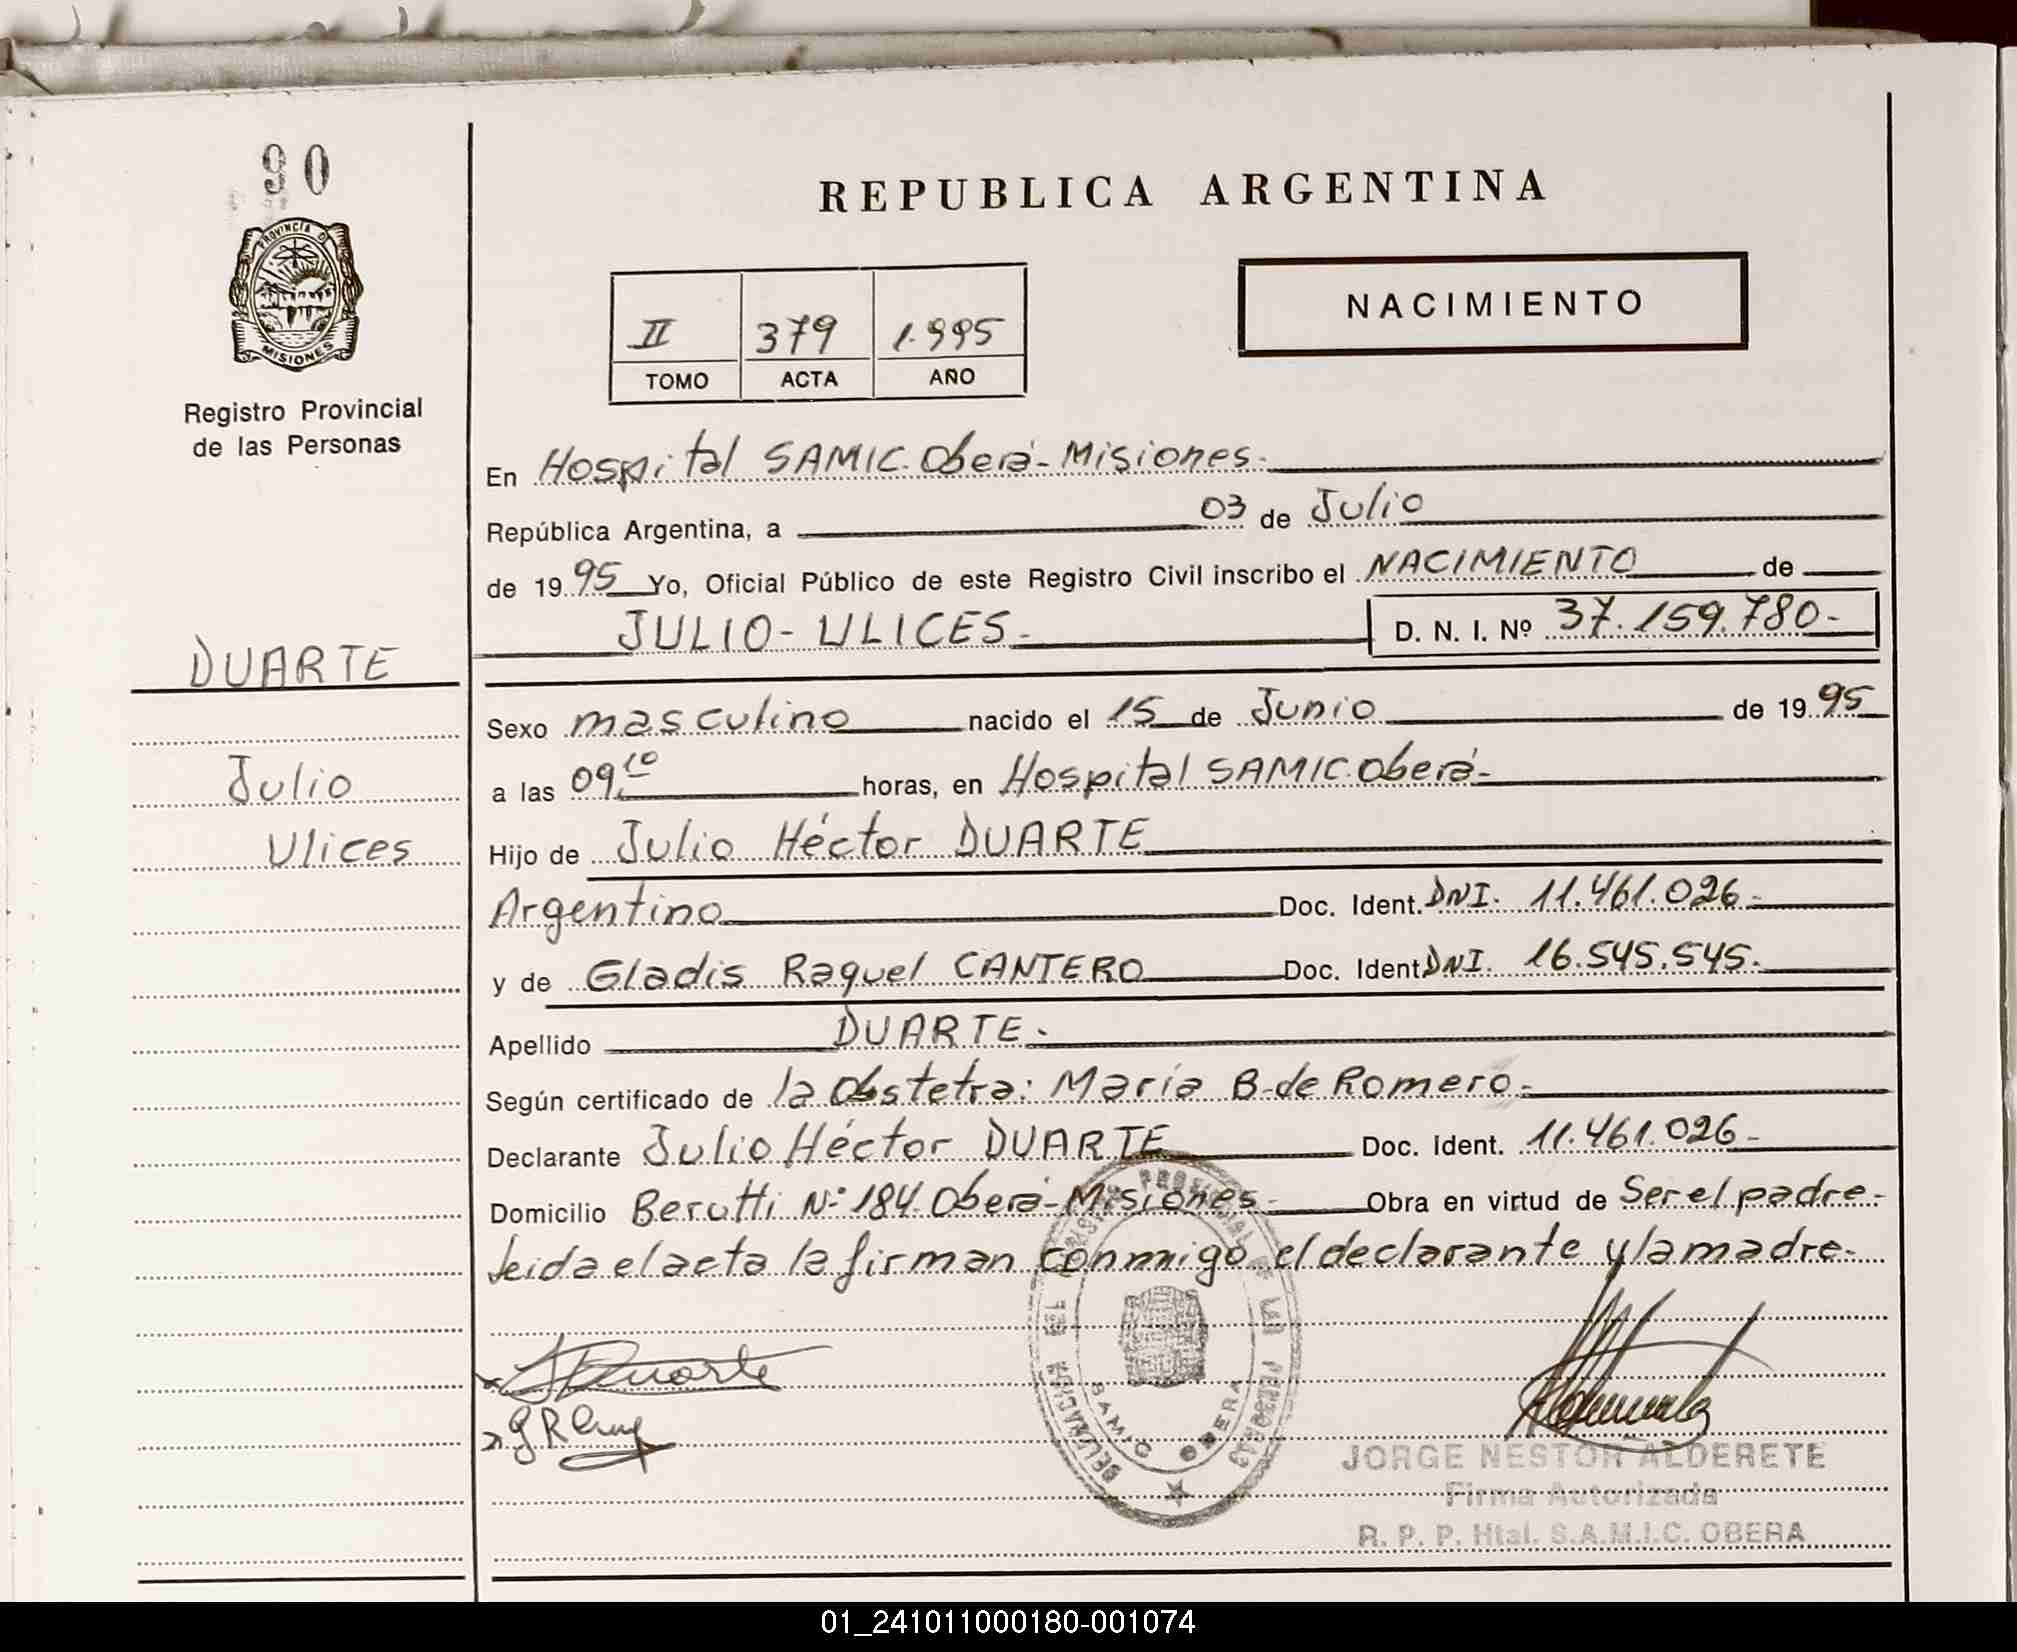 90
PROVINCIA D
MISIONES
Registro Provincial
de las Personas
REPUBLICA ARGENTINA
II 379 1.995
TOMO ACTA AÑO
NACIMIENTO
En Hospital SAMIC. Oberá - Misiones.
República Argentina, a 03 de Julio
de 19 95 Yo, Oficial Público de este Registro Civil inscribo el NACIMIENTO de
JULIO - ULICES. D. N. I. Nº 37.159.780.-
DUARTE
Julio
Ulices
Sexo masculino nacido el 15 de Junio de 19 95
a las 09.10 horas, en Hospital SAMIC. Oberá-
Hijo de Julio Héctor DUARTE
Argentino Doc. Ident. DNI. 11.461.026.-
y de Gladis Raquel CANTERO Doc. Ident DNI. 16.545.545.
Apellido DUARTE.
Según certificado de la Obstetra: María B. de Romero.-
Declarante Julio Héctor DUARTE Doc. Ident. 11.461.026-
Domicilio Berutti Nº 184. Oberá - Misiones - Obra en virtud de Ser el padre.-
leida el acta la firman conmigo el declarante y la madre.-
DELEGACION DEL REGISTRO PROVINCIAL DE LAS PERSONAS
SAMIC OBERA
JDuarte
JORGE NESTOR ALDERETE
Firma Autorizada
R. P. P. Htal. S.A.M.I.C. OBERA
01_241011000180-001074